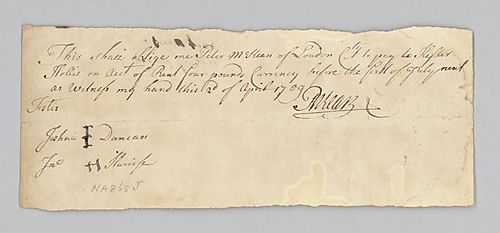 This shall oblige me Peter McKean of London Ct to pay to Hester
Holis on Act of Rent four pounds Currency before the first of July next
as Witness my hand this 2d of April 1709
Testis PMKean
Joshua Duncan
Jno
NA868J